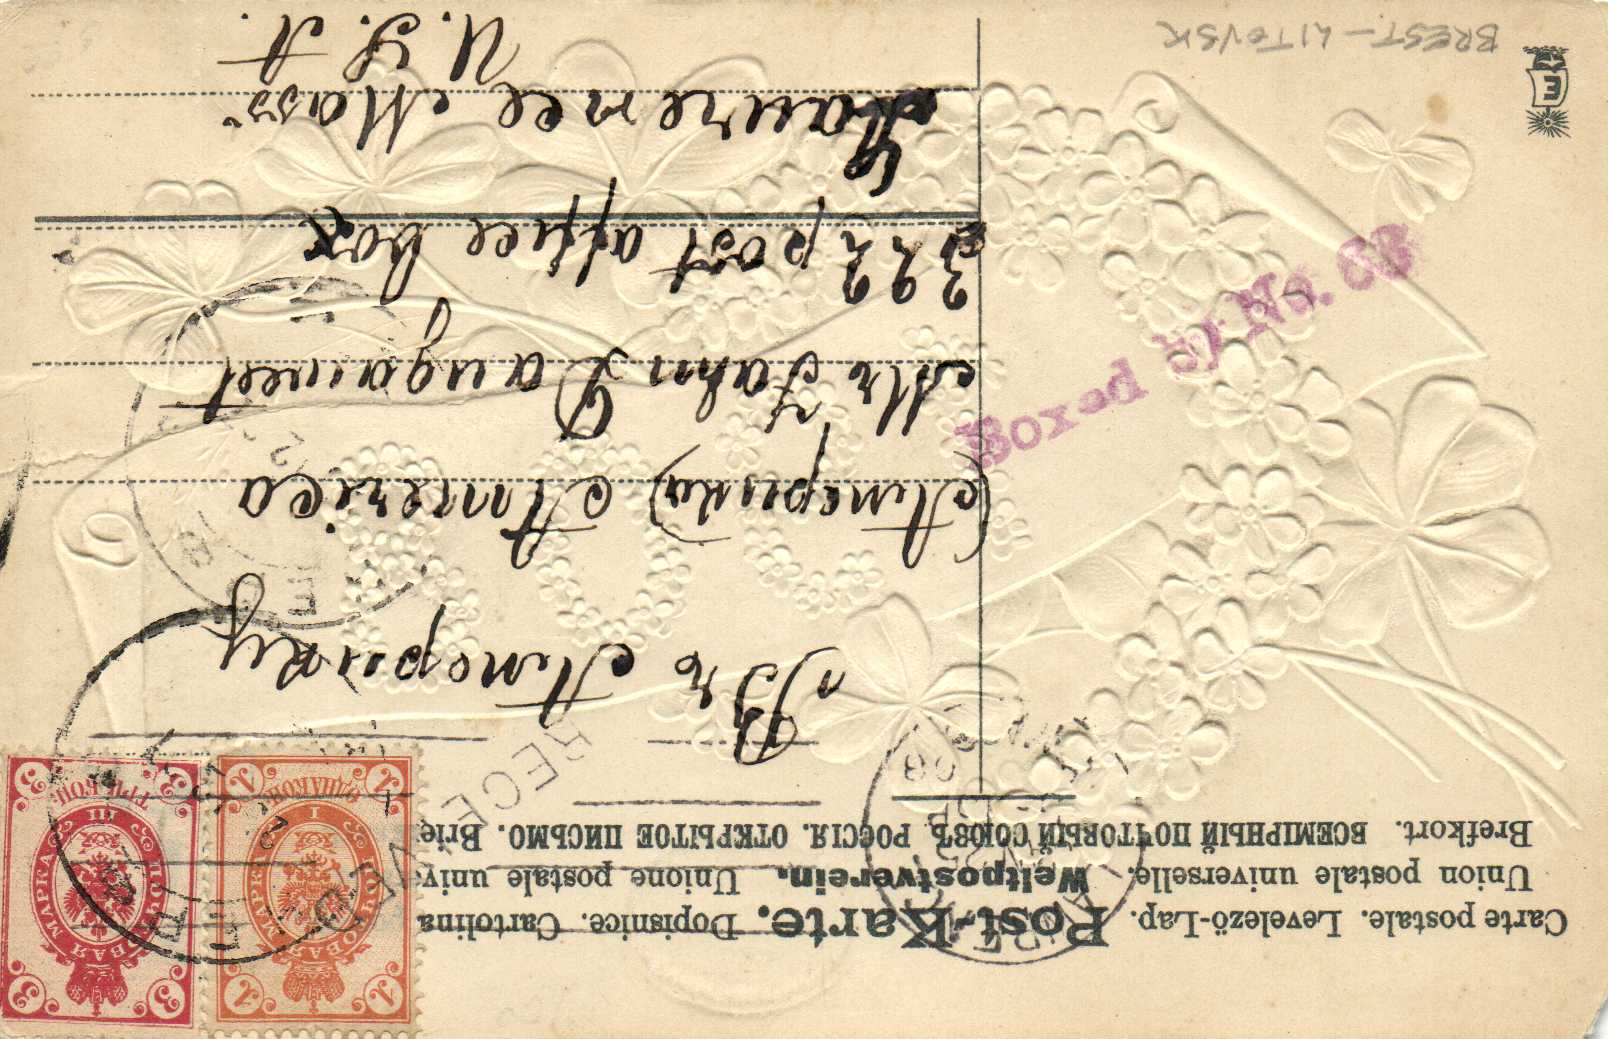 Carte postale. Levelező-Lap. Post-Karte. Dopisnice. Cartolina
Union postale universelle. Weltpostverein. Unione postale univ
Brefkort. ВСЕМІРНЫЙ ПОЧТОВЫЙ СОЮЗЪ. РОССІЯ. ОТКРЫТОЕ ПИСЬМО. Brie
ПОЧТОВАЯ МАРКА
1 ОДНА КОП. 1
ПОЧТОВАЯ МАРКА
3 ТРИ КОП. 3
RECEIVED
Въ Америку
(Америка) America
Mr John Daugawet
322 post office box
Lawrence Mass
U. S. A
Boxed by No. 63
BREST-LITOVSK
E